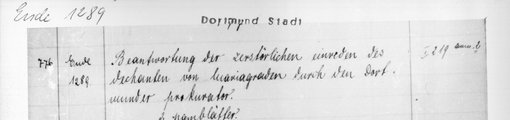 Ende 1289
Dortmund Stadt
776 Ende 1289 Beantwortung der zerstörlichen einreden des
dechanten von Mariagraden durch den Dort-
munder prokurator.
2 pgmblätter.
I 219 anm. b